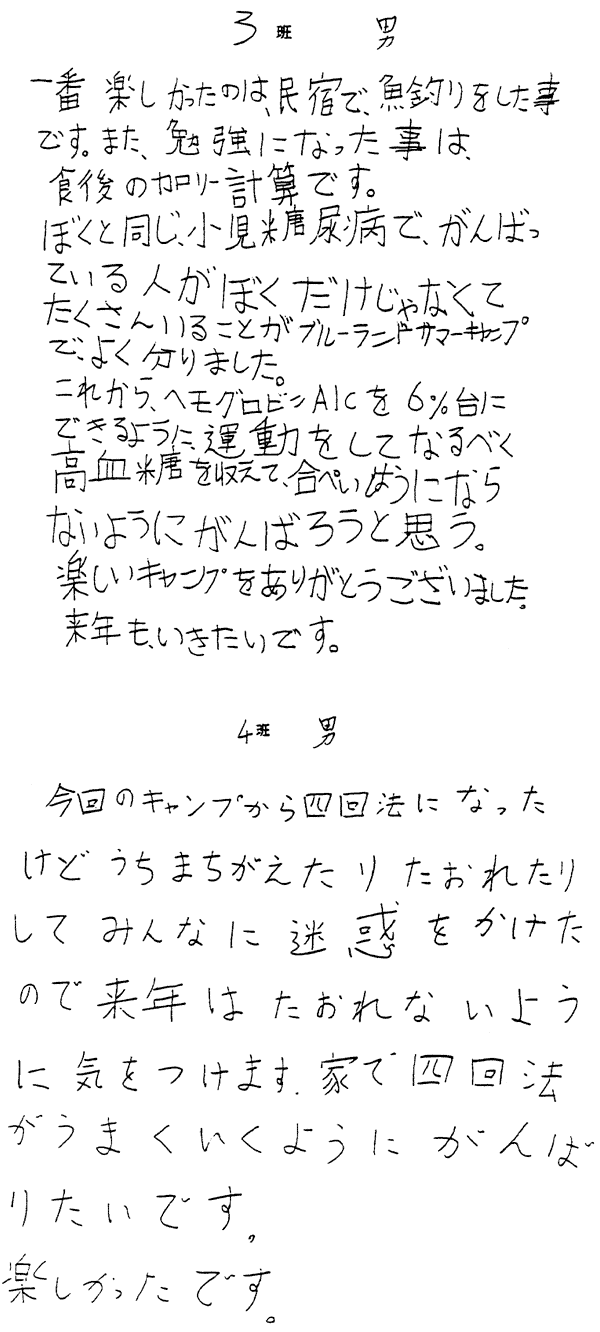 3班 男
一番楽しかったのは、民宿で、魚釣りをした事
です。また、勉強になった事は、
食後のカロリー計算です。
ぼくと同じ、小児糖尿病で、がんばっ
ている人がぼくだけじゃなくて
たくさんいることがブルーランドサマーキャンプ
で、よく分りました。
これから、ヘモグロビンA1Cを6%台に
できるように、運動をしてなるべく
高血糖を収えて、合ぺいしょうになら
ないようにがんばろうと思う。
楽しいキャンプをありがとうございました。
来年も、いきたいです。
4班 男
今回のキャンプから四回法になった
けどうちまちがえたりたおれたり
してみんなに迷惑をかけた
ので来年はたおれないよう
に気をつけます。家で四回法
がうまくいくようにがんば
りたいです。
楽しかったです。